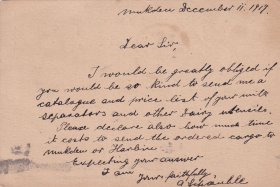 Mukden December 11. 1919.
Dear Sir,
I would be greatly obliged if
you would be so kind to send me a
catalogue and price-list of your milk
separators and other dairy utensils.
Please declare also how much time
it costs to send the ordered cargo to
Mukden or Harbin
Expecting your answer
I am
Yours faithfully